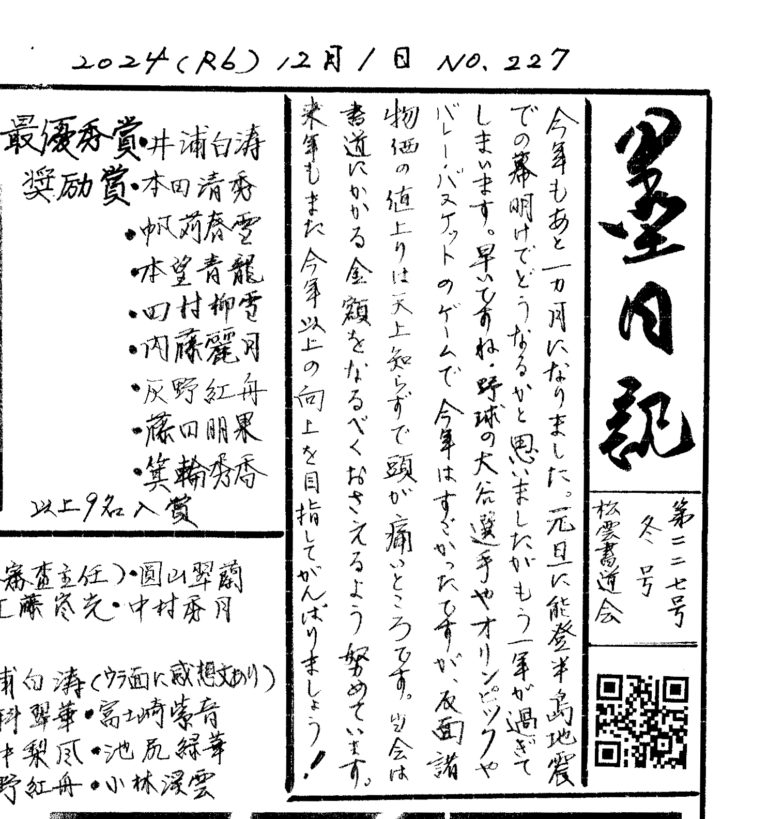 2024(R6)12月1日 NO.227
墨日記
第二二七号
冬号
松雲書道会
今年もあと一カ月になりました。元旦に能登半島地震
での幕明けでどうなるかと思いましたがもう一年が過ぎて
しまいます。早いですね・野球の大谷選手やオリンピックや
バレー・バスケットのゲームで今年はすごかったですが、反面諸
物価の値上りは天上知らずで頭が痛いところです。当会は
書道にかかる金額をなるべくおさえるよう努めています。
来年もまた今年以上の向上を目指してがんばりましょう!
最優秀賞・井浦白涛
奨励賞・本田清秀
・帆苅春雪
・本望青龍
・四村柳雪
・内藤麗月
・灰野紅舟
・藤田明果
・箕輪秀香
以上9名入賞
審査主任)・圓山翠蘭
藤 光・中村秀月
浦白涛(ウラ面に感想文あり)
科翠華・富士崎紫音
中梨風・池尻緑華
野紅舟・小林渓雲